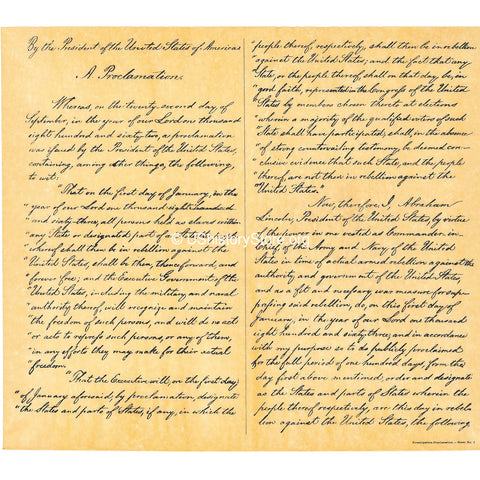 By the President of the United States of America:
A Proclamation.
Whereas, on the twenty-second day of
September, in the year of our Lord one thousand
eight hundred and sixty two, a proclamation
was issued by the President of the United States,
containing, among other things, the following,
to wit:
"That on the first day of January, in the
"year of our Lord one thousand eight hundred
"and sixty-three, all persons held as slaves within
"any State or designated part of a State, the people
"whereof shall then be in rebellion against the
"United States, shall be then, thenceforward, and
"forever free; and the Executive Government of the
"United States, including the military and naval
"authority thereof, will recognize and maintain
"the freedom of such persons, and will do no act
"or acts to repress such persons, or any of them,
"in any efforts they may make for their actual
"freedom.
"That the Executive will, on the first day
"of January aforesaid, by proclamation, designate
"the States and parts of States, if any, in which the
"people thereof, respectively, shall then be in rebellion
"against the United States; and the fact that any
"State, or the people thereof, shall on that day be, in
"good faith, represented in the Congress of the United
"States by members chosen thereto at elections
"wherein a majority of the qualified voters of such
"State shall have participated, shall, in the absence
"of strong countervailing testimony, be deemed con-
"clusive evidence that such State, and the people
"thereof, are not then in rebellion against the
"United States."
Now, therefore, I, Abraham
Lincoln, President of the United States, by virtue
of the power in me vested as Commander-in-
Chief, of the Army and Navy of the United
States in time of actual armed rebellion against the
authority and government of the United States,
and as a fit and necessary war measure for sup-
pressing said rebellion, do, on this first day of
January, in the year of our Lord one thousand
eight hundred and sixty three, and in accordance
with my purpose so to do publicly proclaimed
for the full period of one hundred days, from the
day first above mentioned, order and designate
as the States and parts of States wherein the
people thereof respectively, are this day in rebel-
lion against the United States, the following
© USHistoryStore.org
Emancipation Proclamation – Sheet No. 1